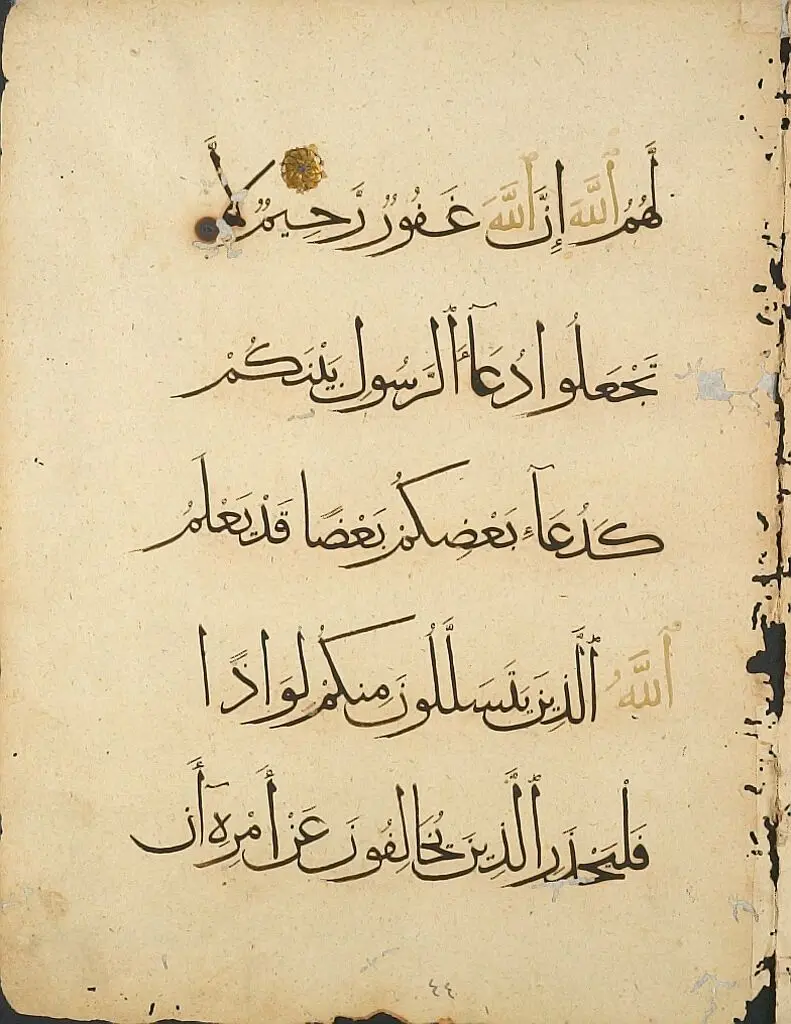 لَهُمُ ٱللَّهَ إِنَّ ٱللَّهَ غَفُورٌ رَّحِيمٌ لَّا
تَجْعَلُوا دُعَآءَ ٱلرَّسُولِ بَيْنَكُمْ
كَدُعَآءِ بَعْضِكُمْ بَعْضًا قَدْ يَعْلَمُ
ٱللَّهُ ٱلَّذِينَ يَتَسَلَّلُونَ مِنكُمْ لِوَاذًا
فَلْيَحْذَرِ ٱلَّذِينَ يُخَالِفُونَ عَنْ أَمْرِهِٓ أَن
٤٤